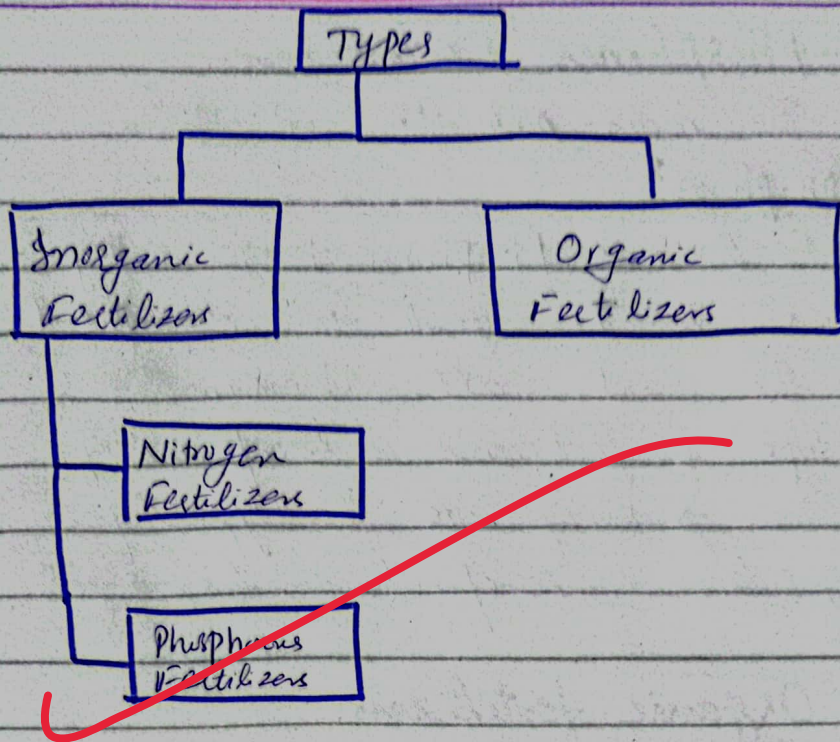 Types
Inorganic
Fertilizers
Organic
Fertilizers
Nitrogen
Fertilizers
Phosphorus
Fertilizers